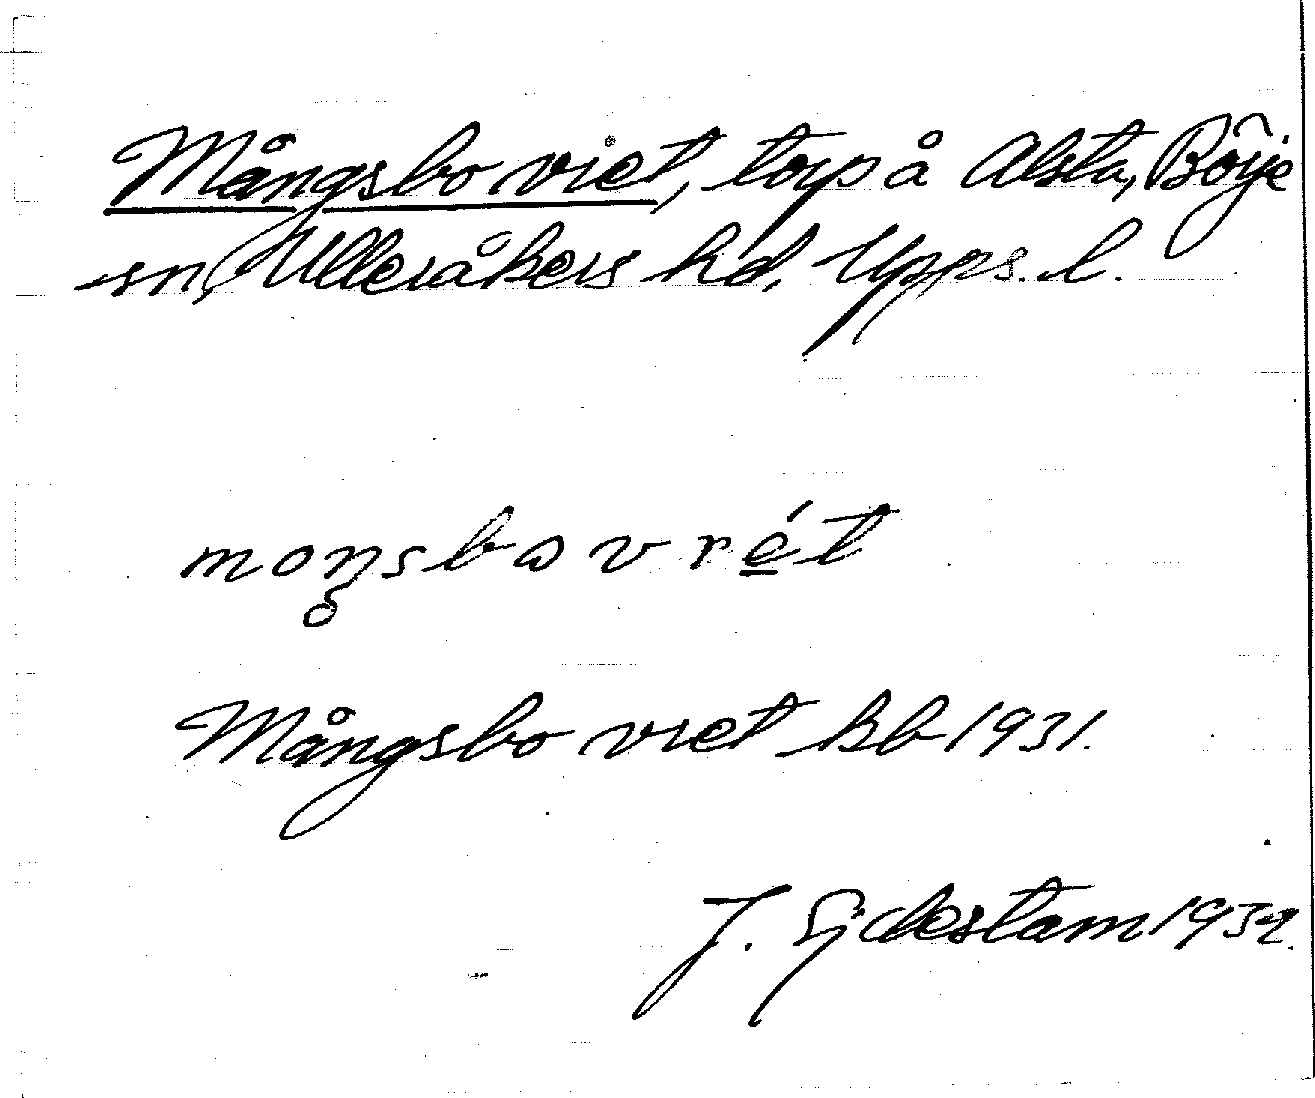 Mångsbo vret, torp å Alsta, Börje
sn, Ulleråkers hd, Upps. l.
moŋsbω vrét
Mångsbo vret kb 1931.
J. Sjdestam 1932.